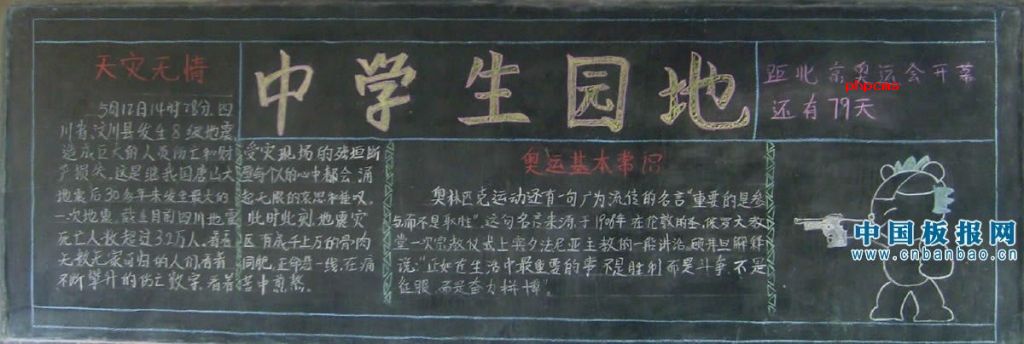 天灾无情
5月12日14时28分,四
川省汶川县发生8级地震
造成巨大的人员伤亡和财
产损失,这是继我国唐山大
地震后30多年来发生最大的
一次地震,截至目前四川地震
死亡人数超过3.2万人,看着
无数无家可归的人们看着
不断攀升的伤亡数字,看着
中学生园地
受灾现场的残垣断
壁每个人的心中都会涌
起无限的哀思和悲叹。
此时此刻,地震灾
区有成千上万的骨肉
同胞,正命悬一线,在痛
苦中煎熬。
奥运基本常识
奥林匹克运动还有一句广为流传的名言“重要的是参
与而不是取胜”。这句名言来源于1908年在伦敦的圣保罗大教
堂一次宗教仪式上宾夕法尼亚主教的一段讲话,顾拜旦解释
说:“正如在生活中最重要的事不是胜利而是斗争,不是
征服而是奋力拼搏”。
距北京奥运会开幕
phpcms
还有79天
中国板报网
www.cnbanbao.cn